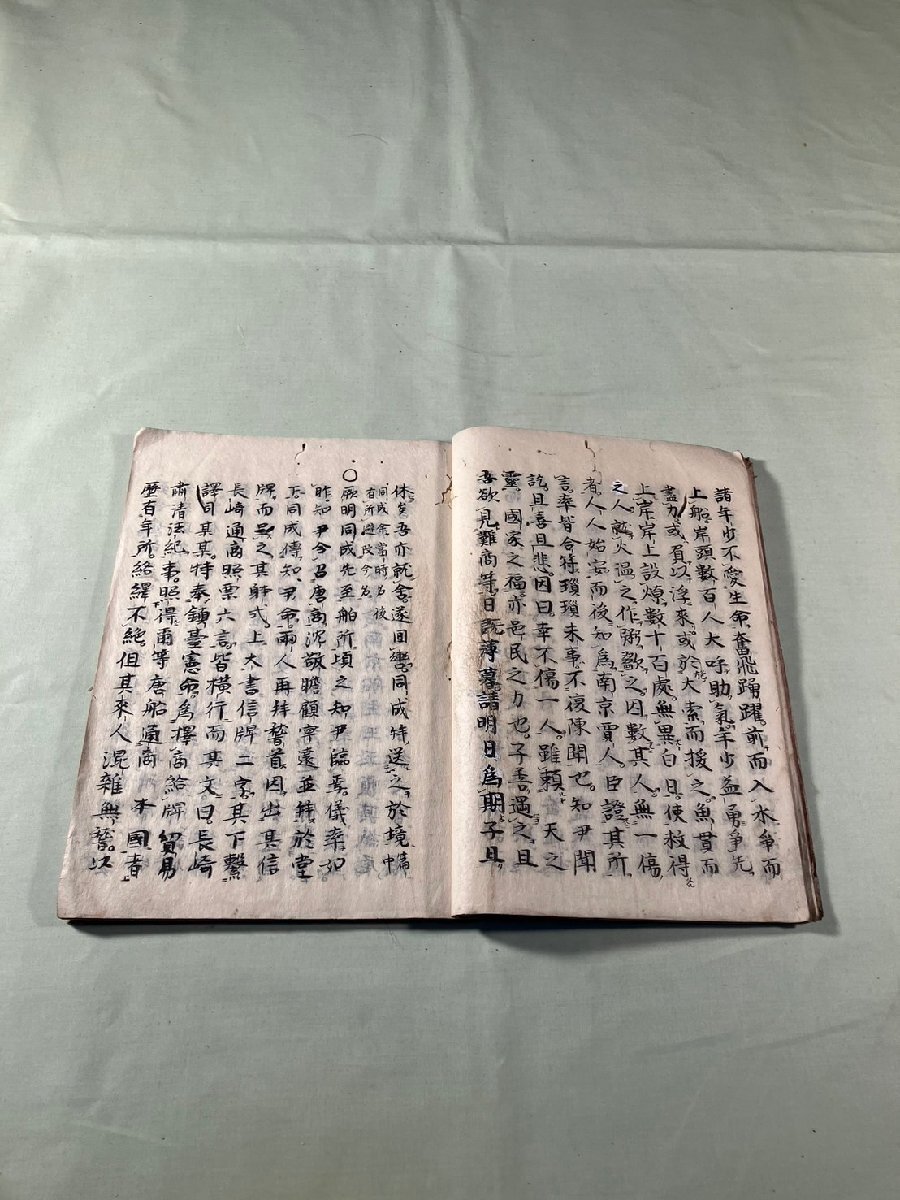 諸年少不愛生命奮飛踊躍前而入水争而
上船岸頭数百人大呼助氣年少益勇争先
盡力或負以浮来或於大索而援之魚貫而
上岸岸上設燎数十百處無異白日使救得
之人敵火温之作粥歠之因数其人無一傷
者人人始安而後知為南京賈人臣證其所
言率皆合符瑣瑣末事不復陳聞也知尹聞
訖且喜且悲因曰幸不傷一人雖頼天之
靈國家之福亦邑民之力也子善遇之且
吾欲見難商等日既薄暮請明日為期子且
休矣吾亦就舎遂回轡同成特送之於境
○厥明同成先至舶所頃之知尹臨焉儀衆如
昨知尹令召唐商沈敬瞻顧寧遠並鯄於堂
下同成傳知尹命兩人再拜誓首因出其信
牌而呈之其牌式上大書信牌二字其下繫
長崎通商照票六言皆横行而其文曰長崎
譯司某某特奉鎮臺憲命為擇商給牌貿易
肅清法紀事照得爾等唐船通商本國者
歴有年所絡繹不絶但其来人混雜無稽以